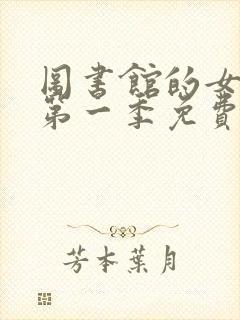 圖書館的女
第一季免費
芳本葉月